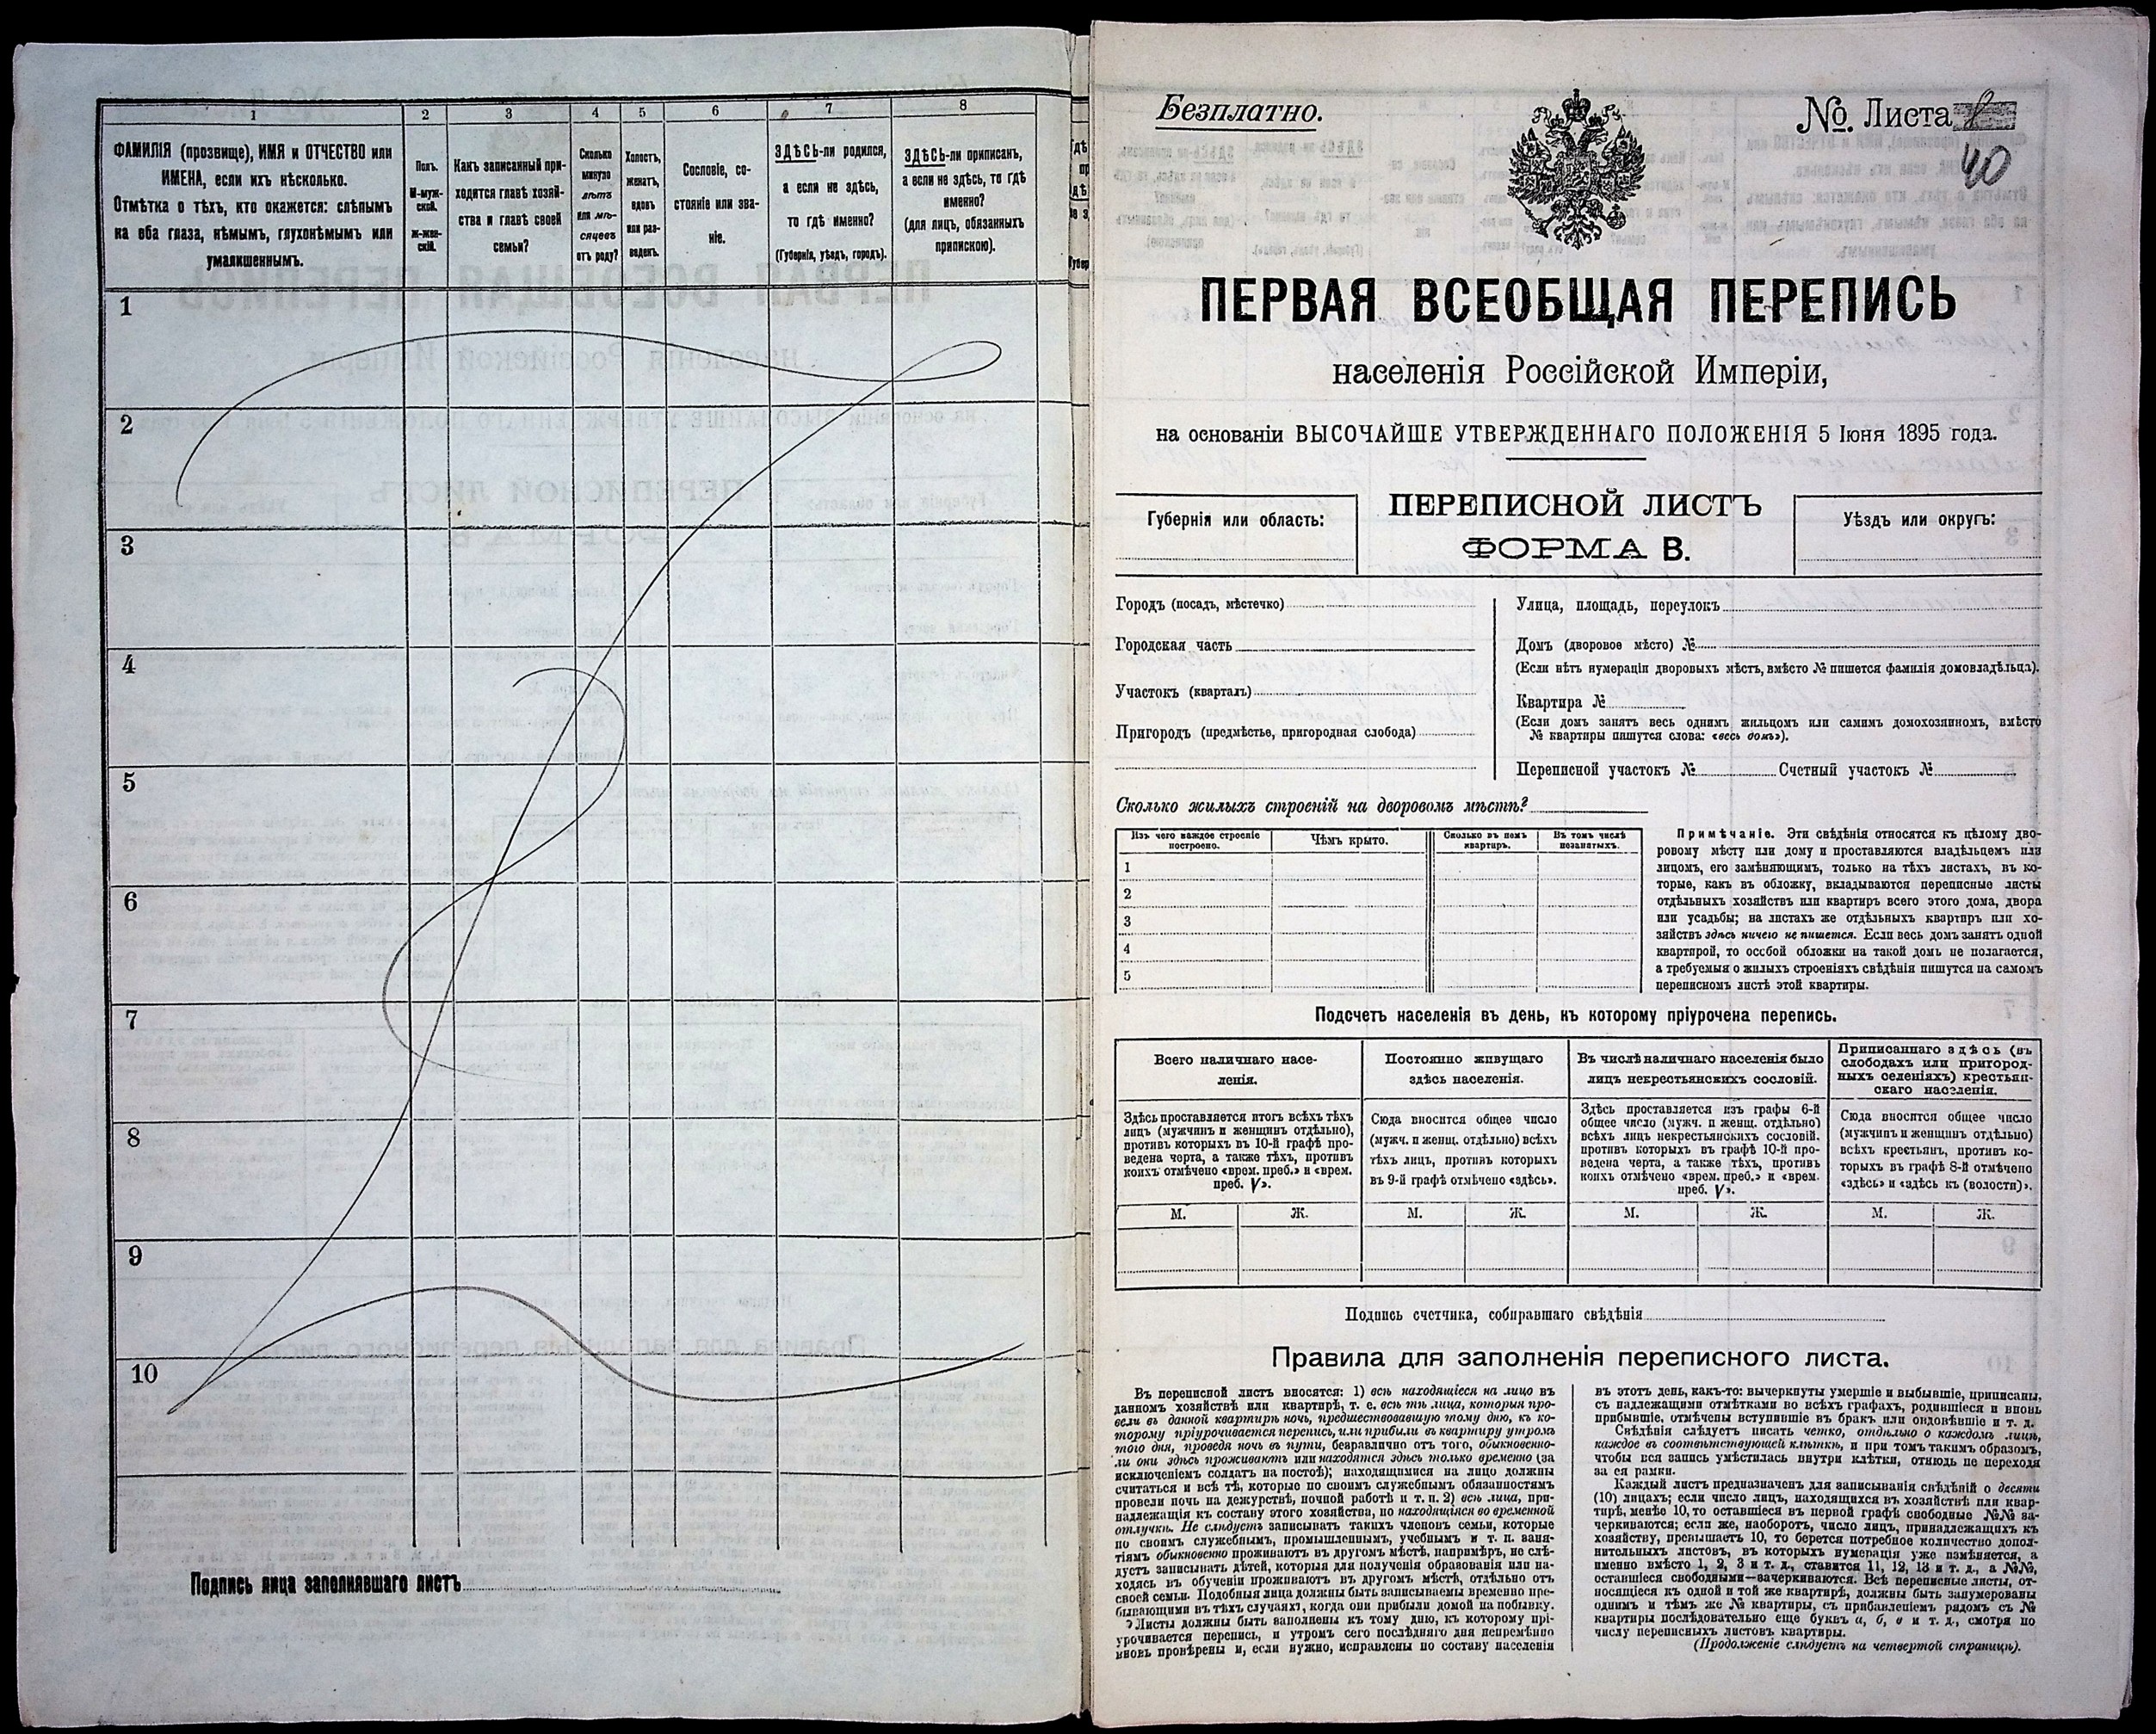 1
2
3
4
5
6
7
8
ФАМИЛІЯ (прозвище), ИМЯ и ОТЧЕСТВО или
ИМЕНА, если ихъ нѣсколько.
Отмѣтка о тѣхъ, кто окажется: слѣпымъ
на оба глаза, нѣмымъ, глухонѣмымъ или
умалишеннымъ.
Полъ.
М-муж-
ской.
Ж-жен-
скій.
Какъ записанный при-
ходится главѣ хозяй-
ства и главѣ своей
семьи?
Сколько
минуло
лѣтъ
или мѣ-
сяцевъ
отъ роду?
Холостъ,
женатъ,
вдовъ
или раз-
веденъ.
Сословіе, со-
стояніе или зва-
ніе.
ЗДѢСЬ-ли родился,
а если не здѣсь,
то гдѣ именно?
(Губернія, уѣздъ, городъ).
ЗДѢСЬ-ли приписанъ,
а если не здѣсь, то гдѣ
именно?
(для лицъ, обязанныхъ
припискою).
1
2
3
4
5
6
7
8
9
10
Подпись лица заполнявшаго листъ
Безплатно.
№ Листа
40
ПЕРВАЯ ВСЕОБЩАЯ ПЕРЕПИСЬ
населенія Россійской Имперіи,
на основаніи ВЫСОЧАЙШЕ УТВЕРЖДЕННАГО ПОЛОЖЕНІЯ 5 Іюня 1895 года.
Губернія или область:
ПЕРЕПИСНОЙ ЛИСТЪ
ФОРМА В.
Уѣздъ или округъ:
Городъ (посадъ, мѣстечко)
Городская часть
Участокъ (кварталъ)
Пригородъ (предмѣстье, пригородная слобода)
Улица, площадь, переулокъ
Домъ (дворовое мѣсто) №
(Если нѣтъ нумераціи дворовыхъ мѣстъ, вмѣсто № пишется фамилія домовладѣльца).
Квартира №
(Если домъ занятъ весь однимъ жильцомъ или самимъ домохозяиномъ, вмѣсто
№ квартиры пишутся слова: «весь домъ»).
Переписной участокъ № Счетный участокъ №
Сколько жилыхъ строеній на дворовомъ мѣстѣ?
Изъ чего каждое строеніе
построено.
Чѣмъ крыто.
Сколько въ немъ
квартиръ.
Въ томъ числѣ
незанятыхъ.
1
2
3
4
5
Примѣчаніе. Эти свѣдѣнія относятся къ цѣлому дво-
ровому мѣсту или дому и проставляются владѣльцемъ или
лицомъ, его замѣняющимъ, только на тѣхъ листахъ, въ ко-
торые, какъ въ обложку, вкладываются переписные листы
отдѣльныхъ хозяйствъ или квартиръ всего этого дома, двора
или усадьбы; на листахъ же отдѣльныхъ квартиръ или хо-
зяйствъ здѣсь ничего не пишется. Если весь домъ занятъ одной
квартирой, то особой обложки на такой домъ не полагается,
а требуемыя о жилыхъ строеніяхъ свѣдѣнія пишутся на самомъ
переписномъ листѣ этой квартиры.
Подсчетъ населенія въ день, къ которому пріурочена перепись.
Всего наличнаго насе-
ленія.
Постоянно живущаго
здѣсь населенія.
Въ числѣ наличнаго населенія было
лицъ некрестьянскихъ сословій.
Приписаннаго здѣсь (въ
слободахъ или пригород-
ныхъ селеніяхъ) крестьян-
скаго населенія.
Здѣсь проставляется итогъ всѣхъ тѣхъ
лицъ (мужчинъ и женщинъ отдѣльно),
противъ которыхъ въ 10-й графѣ про-
ведена черта, а также тѣхъ, противъ
коихъ отмѣчено «врем. преб.» и «врем.
преб. V».
Сюда вносится общее число
(мужч. и женщ. отдѣльно) всѣхъ
тѣхъ лицъ, противъ которыхъ
въ 9-й графѣ отмѣчено «здѣсь».
Здѣсь проставляется изъ графы 6-й
общее число (мужч. и женщ. отдѣльно)
всѣхъ лицъ некрестьянскихъ сословій,
противъ которыхъ въ графѣ 10-й про-
ведена черта, а также тѣхъ, противъ
коихъ отмѣчено «врем. преб.» и «врем.
преб. V».
Сюда вносится общее число
(мужчинъ и женщинъ отдѣльно)
всѣхъ крестьянъ, противъ ко-
торыхъ въ графѣ 8-й отмѣчено
«здѣсь» и «здѣсь къ (волости)».
М. Ж. М. Ж. М. Ж. М. Ж.
Подпись счетчика, собиравшаго свѣдѣнія
Правила для заполненія переписного листа.
Въ переписной листъ вносятся: 1) всѣ находящіеся на лицо въ
данномъ хозяйствѣ или квартирѣ, т. е. всѣ тѣ лица, которыя про-
вели въ данной квартирѣ ночь, предшествовавшую тому дню, къ ко-
торому пріурочивается перепись, или прибыли въ квартиру утромъ
того дня, проведя ночь въ пути, безразлично отъ того, обыкновенно-
ли они здѣсь проживаютъ или находятся здѣсь только временно (за
исключеніемъ солдатъ на постоѣ); находящимися на лицо должны
считаться и всѣ тѣ, которые по своимъ служебнымъ обязанностямъ
провели ночь на дежурствѣ, ночной работѣ и т. п. 2) всѣ лица, при-
надлежащія къ составу этого хозяйства, но находящіяся во временной
отлучкѣ. Не слѣдуетъ записывать такихъ членовъ семьи, которые
по своимъ служебнымъ, промышленнымъ, учебнымъ и т. п. заня-
тіямъ обыкновенно проживаютъ въ другомъ мѣстѣ, напримѣръ, не слѣ-
дуетъ записывать дѣтей, которыя для полученія образованія или на-
ходясь въ обученіи проживаютъ въ другомъ мѣстѣ, отдѣльно отъ
своей семьи. Подобныя лица должны быть записываемы временно пре-
бывающими въ тѣхъ случаяхъ, когда они прибыли домой на побывку.
Листы должны быть заполнены къ тому дню, къ которому прі-
урочивается перепись, и утромъ сего послѣдняго дня непремѣнно
вновь провѣрены и, если нужно, исправлены по составу населенія
въ этотъ день, какъ-то: вычеркнуты умершіе и выбывшіе, приписаны,
съ надлежащими отмѣтками во всѣхъ графахъ, родившіеся и вновь
прибывшіе, отмѣчены вступившіе въ бракъ или овдовѣвшіе и т. д.
Свѣдѣнія слѣдуетъ писать четко, отдѣльно о каждомъ лицѣ,
каждое въ соотвѣтствующей клѣткѣ, и при томъ такимъ образомъ,
чтобы вся запись умѣстилась внутри клѣтки, отнюдь не переходя
за ея рамки.
Каждый листъ предназначенъ для записыванія свѣдѣній о десяти
(10) лицахъ; если число лицъ, находящихся въ хозяйствѣ или квар-
тирѣ, менѣе 10, то оставшіеся въ первой графѣ свободные №№ за-
черкиваются; если же, наоборотъ, число лицъ, принадлежащихъ къ
хозяйству, превышаетъ 10, то берется потребное количество допол-
нительныхъ листовъ, въ которыхъ нумерація уже измѣняется, а
именно вмѣсто 1, 2, 3 и т. д., ставится 11, 12, 13 и т. д., а №№,
оставшіеся свободными—вачеркиваются. Всѣ переписные листы, от-
носящіеся къ одной и той же квартирѣ, должны быть занумерованы
однимъ и тѣмъ же № квартиры, съ прибавленіемъ рядомъ съ №
квартиры послѣдовательно еще буквъ а, б, в и т. д., смотря по
числу переписныхъ листовъ квартиры.
(Продолженіе слѣдуетъ на четвертой страницѣ).